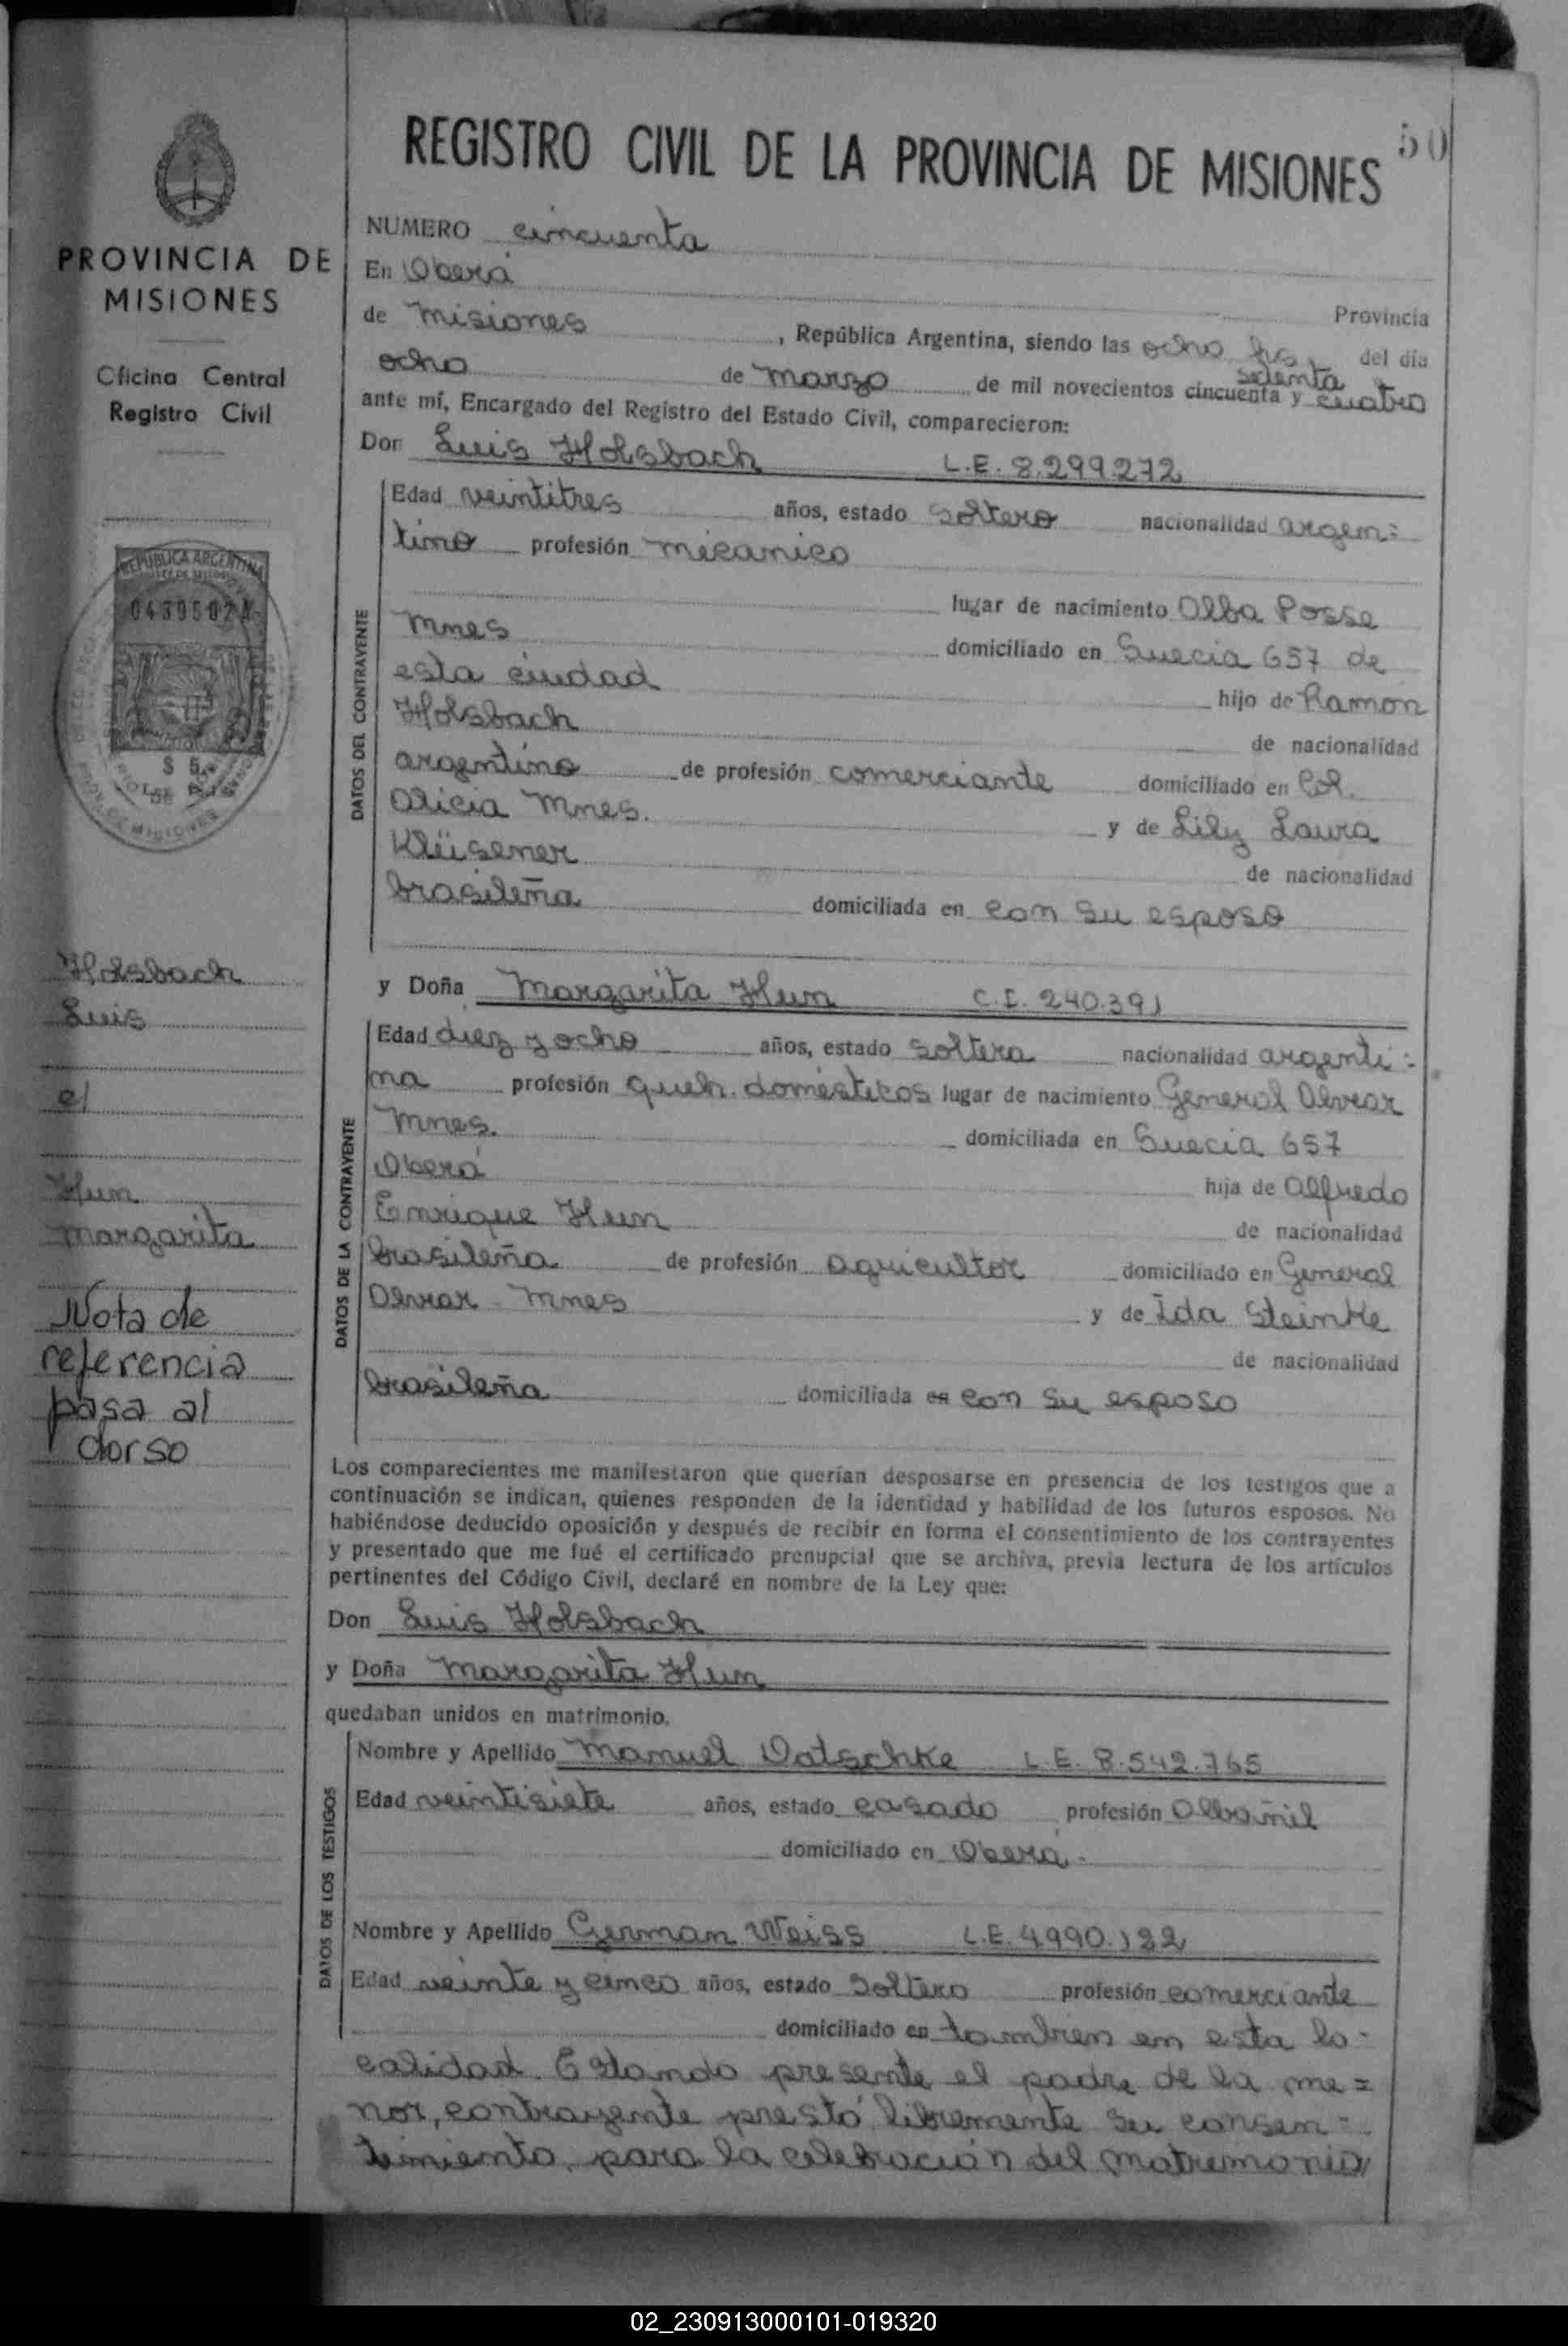 50
REGISTRO CIVIL DE LA PROVINCIA DE MISIONES
PROVINCIA DE
MISIONES
Oficina Central
Registro Civil
REPUBLICA ARGENTINA
$ 5.-
Holsbach
Luis
c/
Hun
Margarita
Nota de
referencia
pasa al
dorso
NUMERO cincuenta
En Oberá
Provincia
de Misiones, República Argentina, siendo las ocho hs, del día
ocho de Marzo de mil novecientos cincuenta setenta y cuatro
ante mí, Encargado del Registro del Estado Civil, comparecieron:
Don Luis Holsbach L.E. 8.299.272
DATOS DEL CONTRAYENTE
Edad veintitres años, estado soltero nacionalidad argen=
tino profesión mecanico
lugar de nacimiento Alba Posse
Mnes domiciliado en Suecia 657 de
esta ciudad hijo de Ramon
Holsbach de nacionalidad
argentino de profesión comerciante domiciliado en Col.
Alicia Mnes. y de Lily Laura
Klüsener de nacionalidad
brasileña domiciliada en con su esposo
y Doña Margarita Hun C.I. 240.391
DATOS DE LA CONTRAYENTE
Edad diez y ocho años, estado soltera nacionalidad argenti=
na profesión queh. domésticos lugar de nacimiento General Alvear
Mnes. domiciliada en Suecia 657
Oberá hija de Alfredo
Enrique Hun de nacionalidad
brasileña de profesión agricultor domiciliado en General
Alvear - Mnes y de Ida Steinke
de nacionalidad
brasileña domiciliada en con su esposo
Los comparecientes me manifestaron que querían desposarse en presencia de los testigos que a
continuación se indican, quienes responden de la identidad y habilidad de los futuros esposos. No
habiéndose deducido oposición y después de recibir en forma el consentimiento de los contrayentes
y presentado que me fué el certificado prenupcial que se archiva, previa lectura de los artículos
pertinentes del Código Civil, declaré en nombre de la Ley que:
Don Luis Holsbach
y Doña Margarita Hun
quedaban unidos en matrimonio.
DATOS DE LOS TESTIGOS
Nombre y Apellido Manuel Datschke L.E. 8.542.765
Edad veintisiete años, estado casado profesión Albañil
domiciliado en Oberá.-
Nombre y Apellido German Weiss L.E. 4990.122
Edad veinte y cinco años, estado soltero profesión comerciante
domiciliado en tambien en esta lo-
calidad. Estando presente el padre de la me=
nor, contrayente prestó libremente su consen=
timiento, para la celebración del matrimonio
02_230913000101-019320